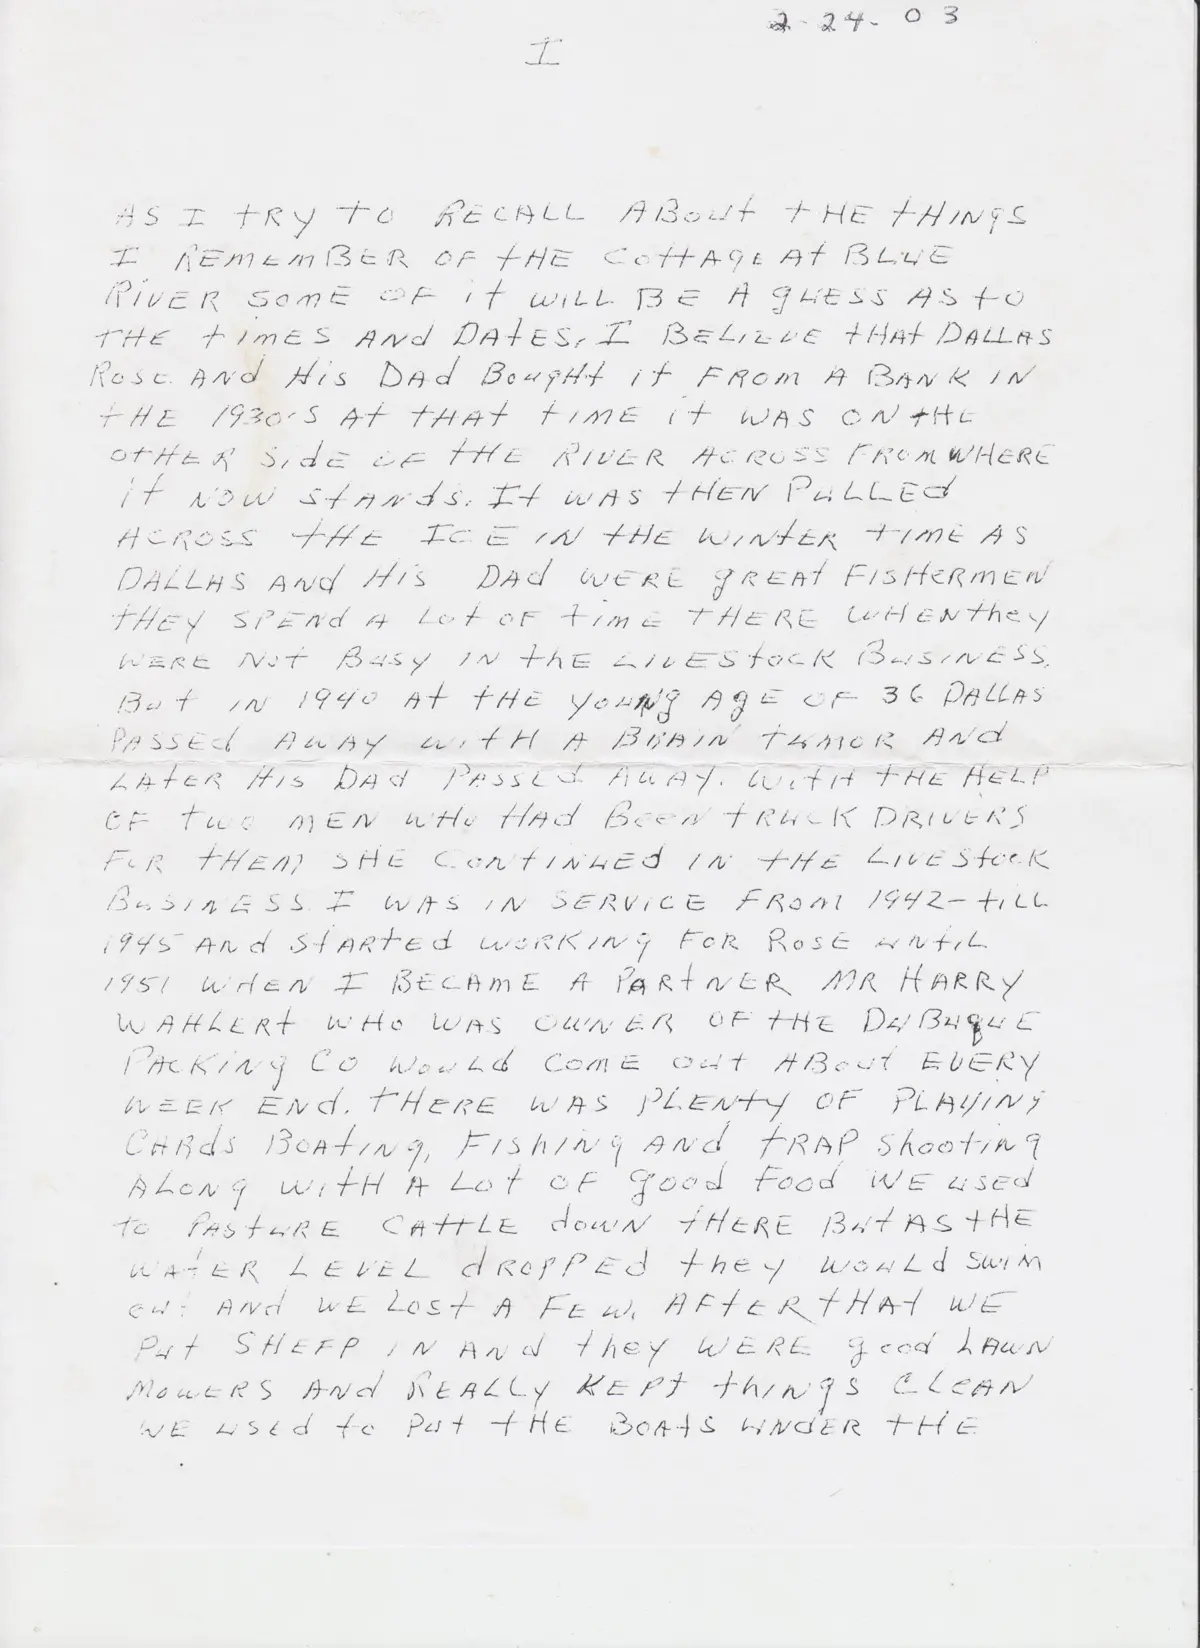 2-24-03
I
AS I tRy tO RECALL ABOut tHE tHINgS
I REMEMBER OF tHE COttAgE At BLUE
RiVER SOME OF it WILL BE A gUESS AS tO
THE tIMES ANd DAtES, I BELIEVE tHAt DALLAS
ROSE ANd HiS DAd BOugHt it FROM A BANK IN
tHE 1930'S At tHAt tIME it WAS ON tHE
OtHER SidE OF tHE RIVER ACROSS FROM WHERE
it NOW StANdS. It WAS tHEN PULLEd
ACROSS tHE ICE IN tHE WINtER tIME AS
DALLAS ANd HiS DAd WERE gREAt FISHERMEN
tHEy SPENd A LOt OF tiME THERE WHEN they
WERE NOt BuSy IN thE LIVEStOCK BuSINESS.
BUt IN 1940 At tHE yOUNg AgE OF 36 DALLAS
PASSEd AWAY WitH A BRAIN tUMOR ANd
LAtER HIS DAd PASSEd AWAY. WitH tHE HELP
OF twO MEN WHO HAd BeeN tRUCK DRIVERS
FOR tHEM SHE CONtINUEd IN tHE LIVEStOCK
BuSINESS I WAS IN SERVICE FROM 1942- tiLL
1945 ANd StARtEd WORKINg FOR ROSE UNtiL
1951 WHEN I BECAME A PARtNER MR HARRY
WAHLERt WHO WAS OWNER OF tHE DUBUqUE
PACKINg CO WOuLd COME Out ABOut EVERY
WEEK ENd. tHERE WAS PLENtY OF PLAYiNg
CARdS BOAtiNg, FiShiNg ANd tRAP Shootinq
ALONg WitH A LOt OF good FOOd WE uSed
to PAStURE CAttLE dOWN tHERE BUt AS tHE
WAtER LEVEL dROPPEd they WOULd SwiM
Out ANd WE LOSt A FEW. AFtER tHAt WE
Put SHEEP IN ANd they WERE good LAWN
MOWERS ANd REALLy KEPt thINgS CLEAN
WE uSEd to Put tHE BOAtS UNdER tHE